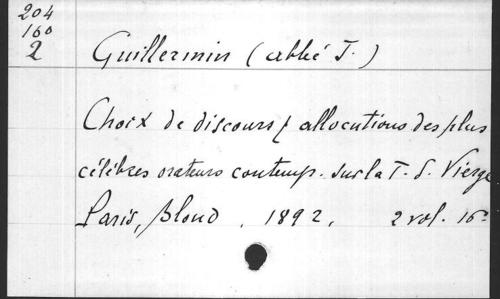 204
160
2
Guillermin (abbé J.)
Choix de discours & allocutions des plus
célèbres orateurs contemp. sur la T. S. Vierge
Paris, Bloud, 1892, 2 vol. 16°